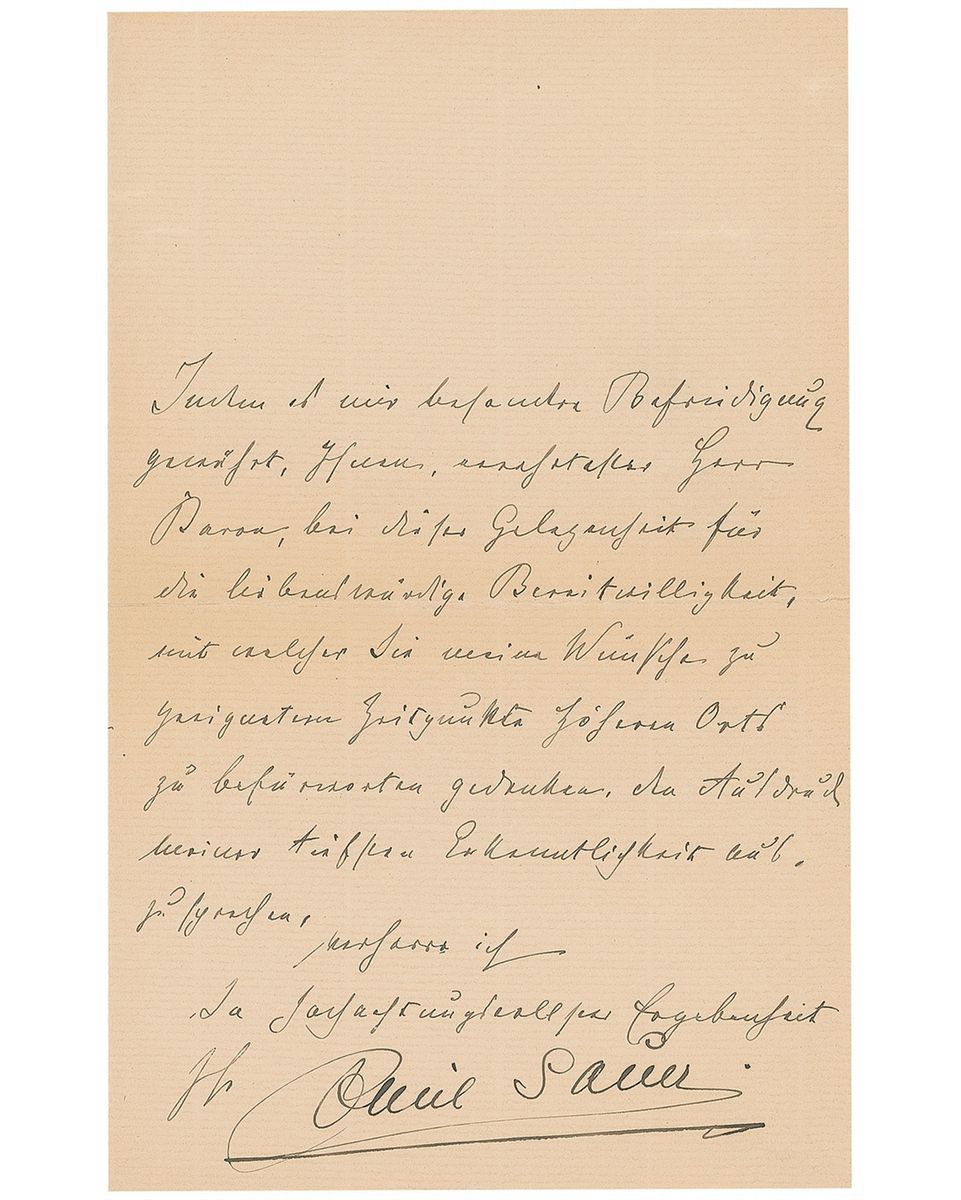 Indem es mir besondere Befriedigung
gewährt, Ihnen, verehrtester Herr
Baron, bei dieser Gelegenheit für
die liebenswürdige Bereitwilligkeit,
mit welcher Sie meine Wünsche zu
geeignetem Zeitpunkte höheren Orts
zu befürworten gedenken, den Ausdruck
meiner tiefsten Erkenntlichkeit aus-
zusprechen,
verharre ich
In hochachtungsvollster Ergebenheit
Ihr Emil Sauer.